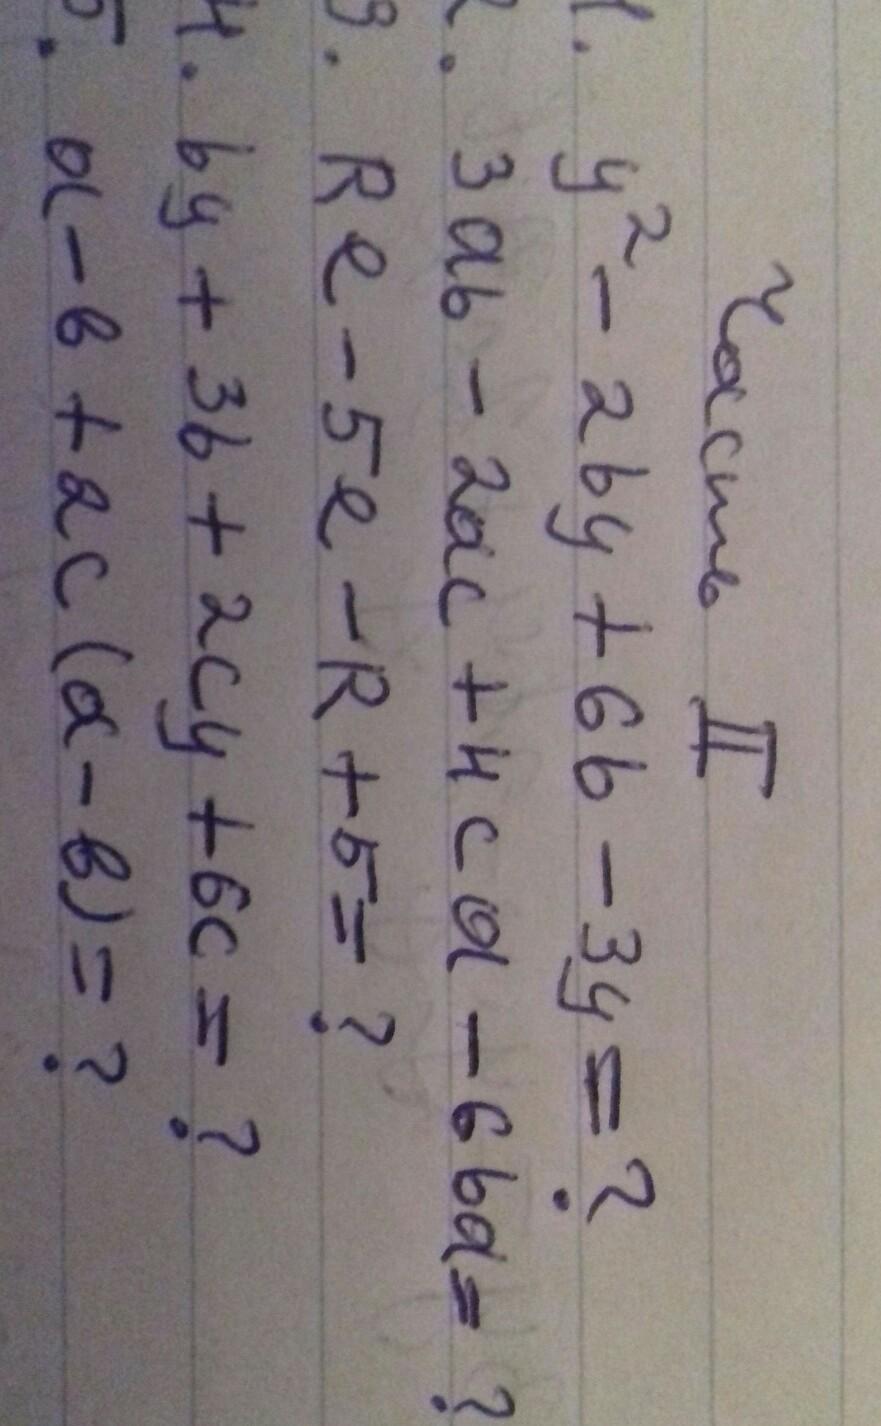 Часть II
1. y² - 2by + 6b - 3y = ?
2. 3ab - 2ac + 4cd - 6bd = ?
3. Re - 5e - R + 5 = ?
4. by + 3b + 2cy + 6c = ?
5. a - b + 2c(a - b) = ?